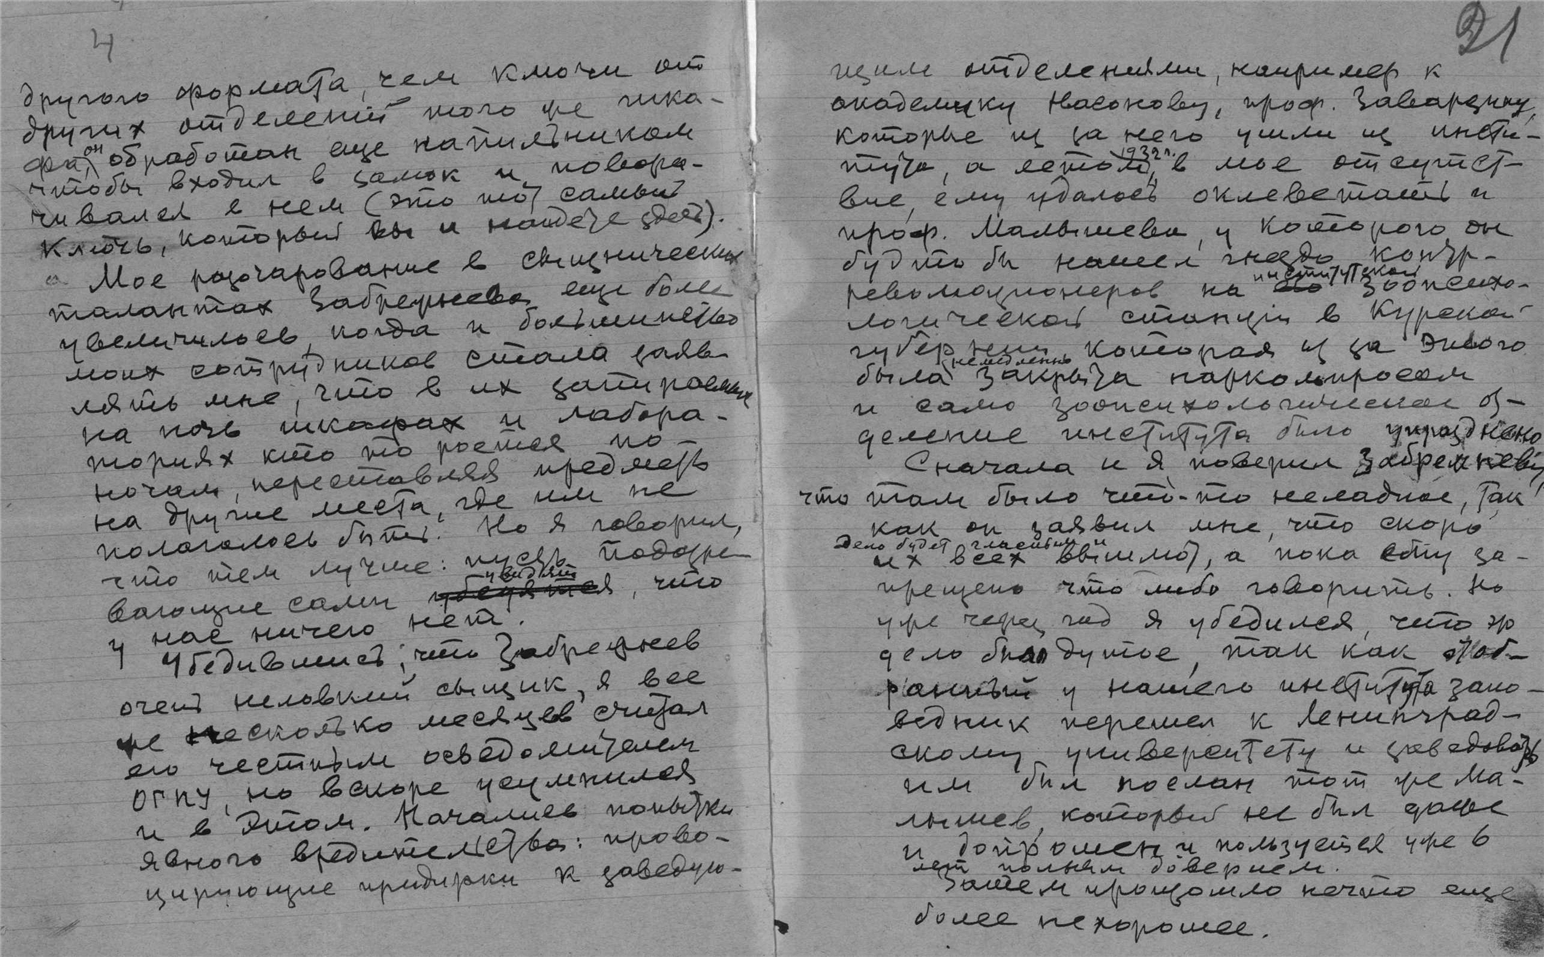 4
другого формата, чем ключи от
других отделений того же шка-
фа, он обработан еще напильником
чтобы входил в замок и повора-
чивался в нем (это тот самый
ключ, который вы и найдете здесь).
Мое разочарование в сыщнических
талантах Забрежнева еще более
увеличилось, когда и большинство
моих сотрудников стала заяв-
лять мне, что в их запираемых
на ночь шкафах и лабора-
ториях кто то роется по
ночам, переставляя предметы
на другие места, где им не
полагалось быть. Но я говорил,
что тем лучше: пусть подозре-
вающие сами увидят, что
у нас ничего нет.
Убедившись, что Забрежнев
очень неловкий сыщик, я все
же несколько месяцев считал
его честным осведомителем
ОГПУ, но вскоре усумнился
и в этом. Начались попытки
явного вредительства: прово-
цирующие придирки к заведую-
21
щим отделениями, например к
академику Насонову, проф. Заварзину,
которые из за него ушли из инсти-
тута, а летом 1932 г., в мое отсутст-
вие, ему удалось оклеветать и
проф. Малышева, у которого он
будто бы нашел гнездо контр-
революционеров на институтской зоопсихо-
логической станции в Курской
губернии которая из за этого
была немедленно закрыта наркомпросом
и само зоопсихологическое от-
деление института было упразднено
Сначала и я поверил Забрежневу,
что там было что-то неладное, так
как он заявил мне, что скоро
дело будет гласным и
их всех вышлют, а пока ему за-
прещено что либо говорить. Но
уже через год я убедился, что это
дело было дутое, так как отоб-
ранный у нашего института запо-
ведник перешел к Ленинград-
скому университету и заведовать
им был послан тот же Ма-
лышев, который не был даже
и допрошен и пользуется уже 6
лет полным доверием.
Затем произошло нечто еще
более нехорошее.